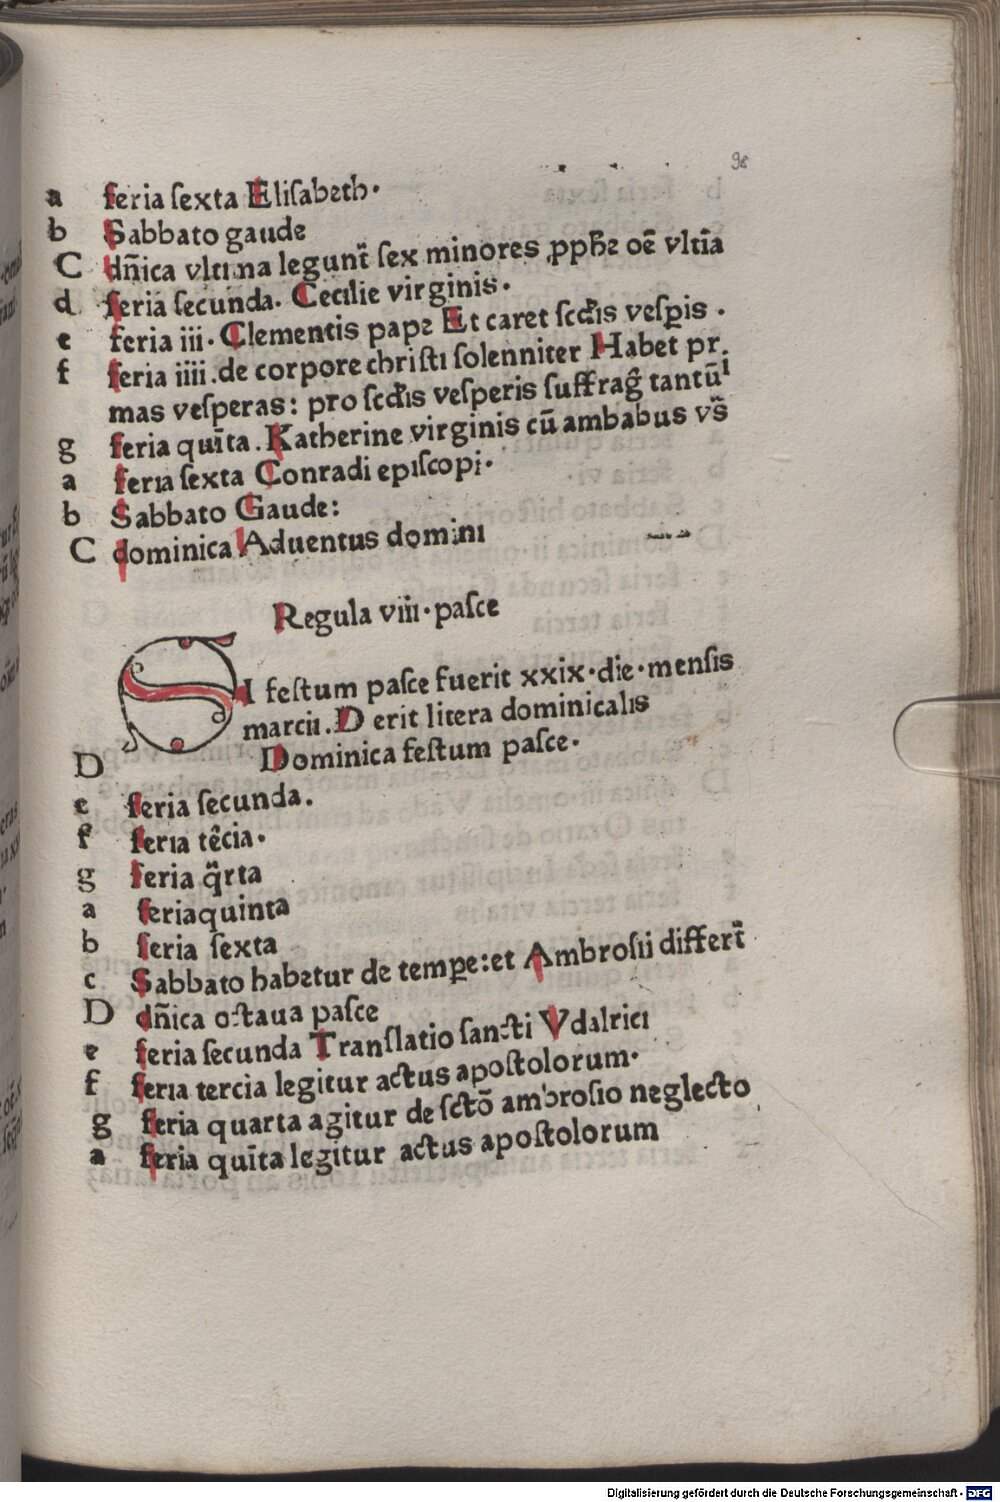 98
a feria ſexta Eliſabeth·
b Sabbato gaude
C dñica vltima legunt̃ ſex minores ꝓpħꝫ oẽ vltĩa
d feria ſecunda. Cecilie virginis·
e feria iii· Clementis papꝫ Et caret ſcd̃is veſꝑis .
f feria iiii.de corpore chriſti ſolenniter Habet pri
mas veſperas: pro ſcd̃is veſperis ſuffrag̃ tantũ
g feria quĩta.Katherine virginis cũ ambabus vs̃
a feria ſexta Conradi epiſcopi·
b Sabbato Gaude:
C dominica Aduentus domini
Regula viii·paſce
SI feſtum paſce fuerit xxix·die·menſis
marcii.D erit litera dominicalis
D Dominica feſtum paſce·
e feria ſecunda.
f feria tẽcia·
g feria q̃rta
a feriaquinta
b feria ſexta
c Sabbato habetur de tempe:et Ambroſii differt̃
D dñica octaua paſce
e feria ſecunda Tranſlatio ſancti Vdalrici
f feria tercia legitur actus apoſtolorum·
g feria quarta agitur de ſctõ ambroſio neglecto
a feria quĩta legitur actus apoſtolorum
Digitalisierung gefördert durch die Deutsche Forschungsgemeinschaft - DFG